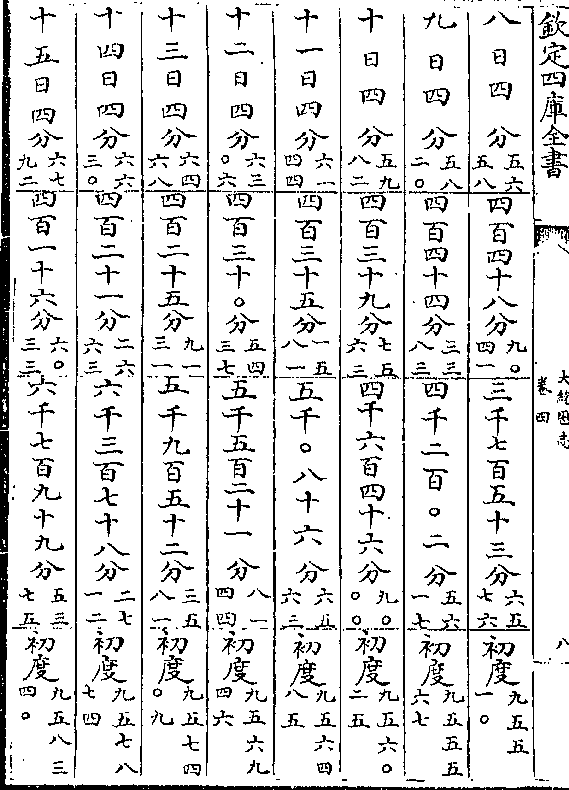 欽定四庫全書
大統歷志
卷四
八
八日四分五六五八 四百四十八分九〇四一 三千七百五十三分六五七六 初度九五五一〇
九日四分五八二〇 四百四十四分三三八三 四千二百〇二分五六一七 初度九五五五六七
十日四分五九八二 四百三十九分七五六三 四千六百四十六分九〇〇〇 初度九五六〇二五
十一日四分六一四四 四百三十五分一五八一 五千〇八十六分六五六三 初度九五六四八五
十二日四分六三〇六 四百三十〇分五四三七 五千五百二十一分八一四四 初度九五六九四六
十三日四分六四六八 四百二十五分九一三一 五千九百五十二分三五八一 初度九五七四〇九
十四日四分六六三〇 四百二十一分二六六三 六千三百七十八分二七一二 初度九五七八七四
十五日四分六七九二 四百一十六分六〇三三 六千七百九十九分五三七五 初度九五八三四〇